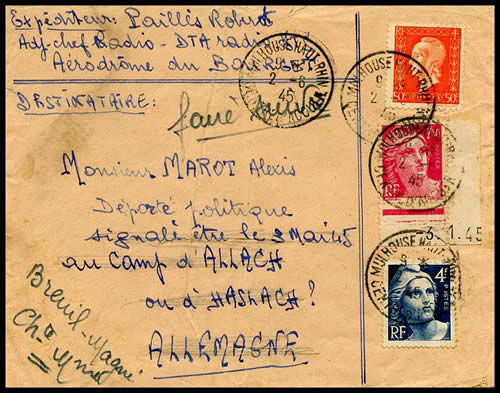 Expéditeur: Paillès Robert
Adj-chef Radio - DTA radio
Aérodrome du BOURGET
DESTINATAIRE:
faire suivre
Monsieur MAROT Alexis
Déporté politique
signalé être le 3 Mai 45
au camp d'ALLACH
ou d'HASLACH?
ALLEMAGNE
Breuil-Magné
Chte Mme
MULHOUSE HAUT-RHIN
2-6
45
50c
50c
RF
-3.1.45
4F
POSTES
RF